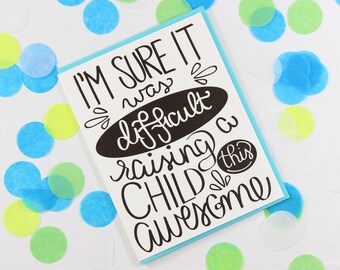 I'M SURE IT
was
difficult
raising a
CHILD this
awesome